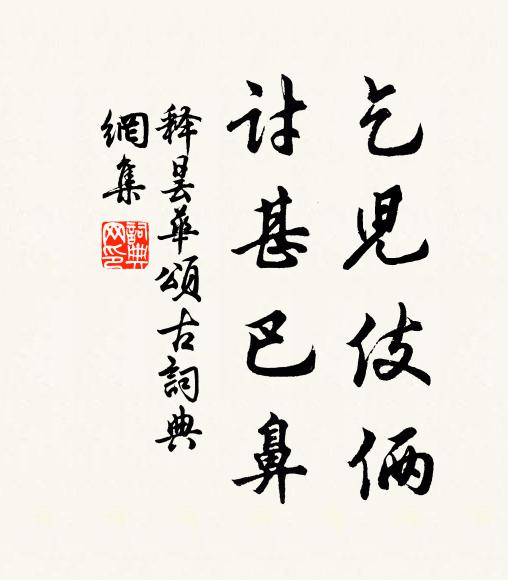 乞兒伎倆
討甚巴鼻
釋曇華頌古詞典
網集
詞典
网印